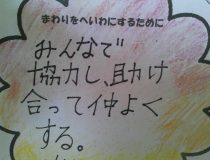 まわりをへいわにするために
みんなで
協力し、助け
合って仲よく
する。